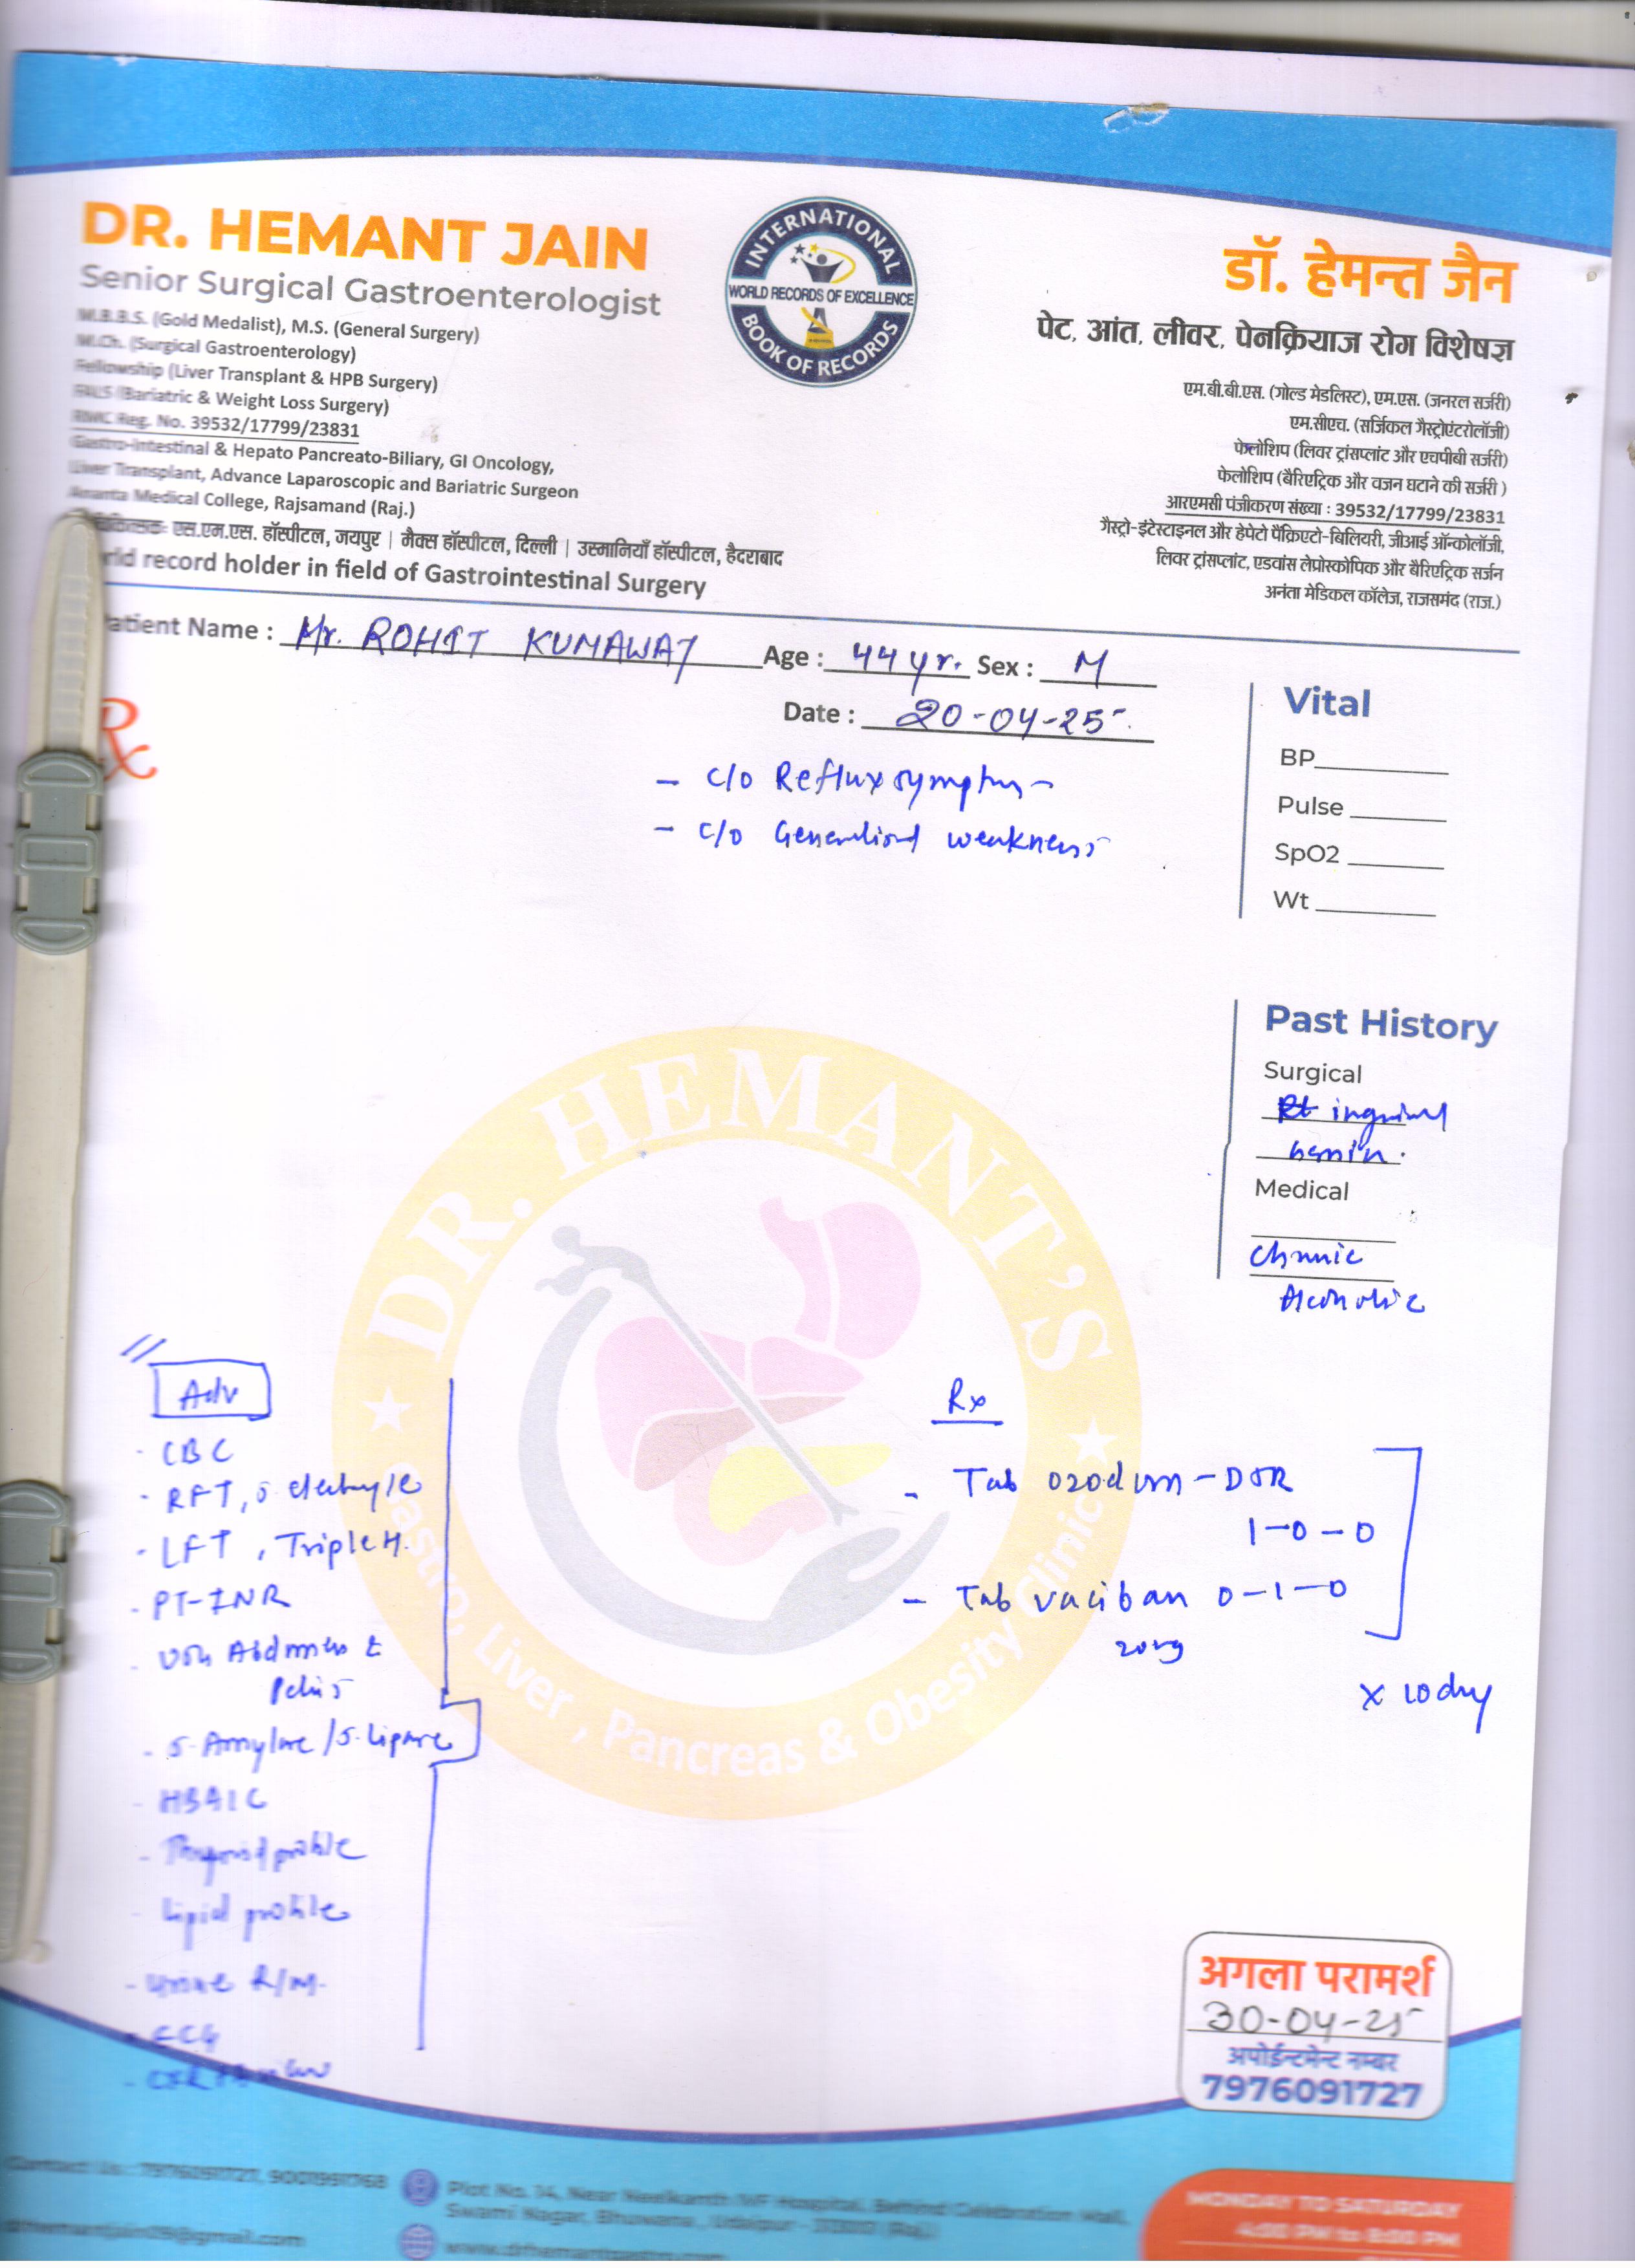 DR. HEMANT JAIN
Senior Surgical Gastroenterologist
M.B.B.S. (Gold Medalist), M.S. (General Surgery)
M.Ch. (Surgical Gastroenterology)
Fellowship (Liver Transplant & HPB Surgery)
FALS (Bariatric & Weight Loss Surgery)
RMC Reg. No. 39532/17799/23831
Gastro-Intestinal & Hepato Pancreato-Biliary, GI Oncology,
Liver Transplant, Advance Laparoscopic and Bariatric Surgeon
Ananta Medical College, Rajsamand (Raj.)
एस.एम.एस. हॉस्पीटल, जयपुर | मैक्स हॉस्पीटल, दिल्ली | उस्मानियाँ हॉस्पीटल, हैदराबाद
record holder in field of Gastrointestinal Surgery
INTERNATIONAL
WORLD RECORDS OF EXCELLENCE
BOOK OF RECORDS
डॉ. हेमन्त जैन
पेट, आंत, लीवर, पेनक्रियाज रोग विशेषज्ञ
एम.बी.बी.एस. (गोल्ड मेडलिस्ट), एम.एस. (जनरल सर्जरी)
एम.सीएच. (सर्जिकल गैस्ट्रोएंटरोलॉजी)
फेलोशिप (लिवर ट्रांसप्लांट और एचपीबी सर्जरी)
फेलोशिप (बैरिएट्रिक और वजन घटाने की सर्जरी )
आरएमसी पंजीकरण संख्या : 39532/17799/23831
गैस्ट्रो-इंटेस्टाइनल और हेपेटो पैंक्रिएटो-बिलियरी, जीआई ऑन्कोलॉजी,
लिवर ट्रांसप्लांट, एडवांस लेप्रोस्कोपिक और बैरिएट्रिक सर्जन
अनंता मेडिकल कॉलेज, राजसमंद (राज.)
Patient Name : Mr. ROHIT KUMAWAT Age : 44 yr. Sex : M
Date : 20-04-25
Rx
- c/o Reflux symptoms
- c/o Generalised weakness
Vital
BP
Pulse
SpO2
Wt
Past History
Surgical
Rt inguinal
hernia.
Medical
Chronic
Alcoholic
DR. HEMANT'S
Gastro, Liver, Pancreas & Obesity Clinic
Adv
- CBC
- RFT, S electrolyte
- LFT, Triple H.
- PT-INR
- USG Abdomen &
Pelvis
- S. Amylase / S. Lipase
- HBA1C
- Thyroid profile
- Lipid profile
- Urine R/M.
- ECG
- CXR PA view
Rx
- Tab ozodum - DSR
1-0-0
- Tab vaciban 0-1-0
20mg
x 10 day
अगला परामर्श
30-04-25
अपोईन्टमेन्ट नम्बर
7976091727
Contact Us : 7976091727, 9001991768
Plot No. 14, Near Neelkanth IVF Hospital, Behind Celebration Mall,
Swami Nagar, Bhuwana, Udaipur - (Raj.)
MONDAY TO SATURDAY
4:00 PM to 8:00 PM